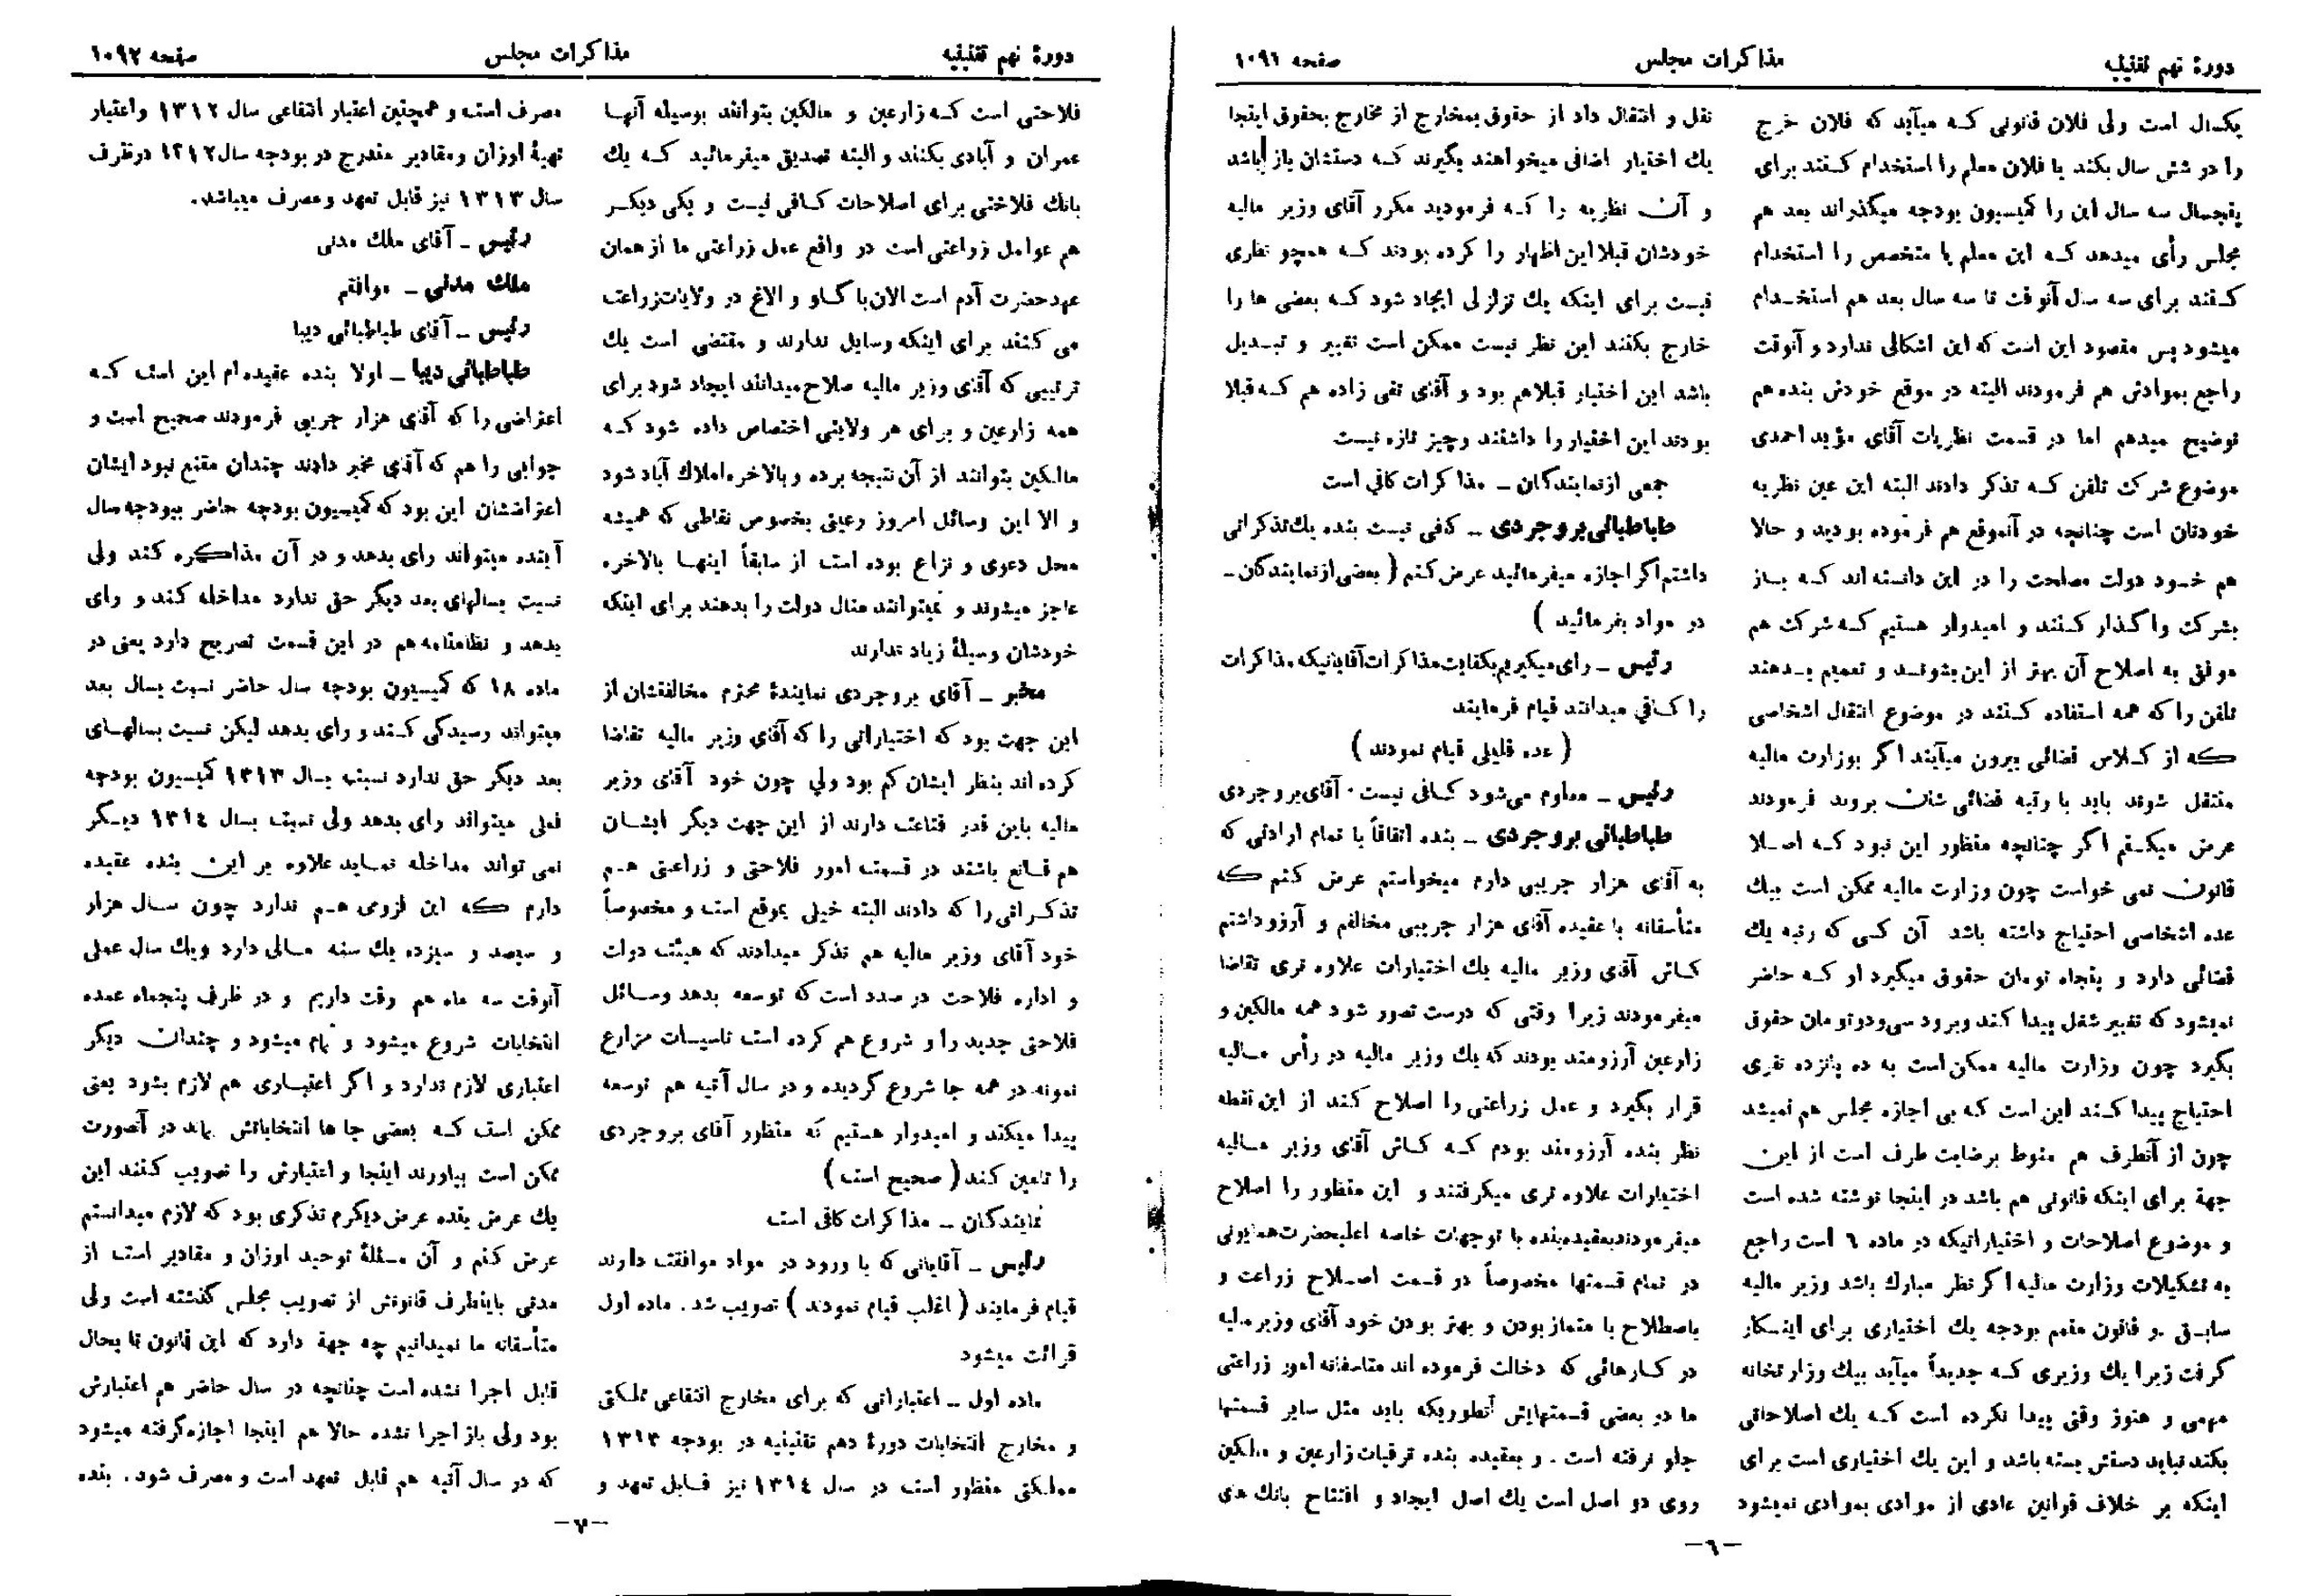 دورهٔ نهم تقنینیه
مذاکرات مجلس
صفحه ۱۰۹۱
یکسال است ولی فلان قانونی کـه میآید که فلان خرج
را در شش سال بکند یا فلان معلم را استخدام کـنند برای
پنجسال سه سال این را کمیسیون بودجه میگذراند بعد هم
مجلس رأی میدهد کـه این معلم یا متخصص را استخدام
کـنند برای سه سال آنوقت تا سه سال بعد هم استخـدام
میشود پس مقصود این است که این اشکالی ندارد و آنوقت
راجع بموادش هم فرمودند البته در موقع خودش بنده هم
توضیح میدهم اما در قسمت نظریات آقای مؤید احمدی
موضوع شرکت تلفن کـه تذکر دادند البته این عین نظریه
خودتان است چنانچه در آنموقع هم فرموده بودید و حالا
هم خـود دولت مصلحت را در این دانسته اند کـه بـاز
بشرکت واگذار کـنند و امیدوار هستیم کـه شرکت هم
موفق به اصلاح آن بهتر از این بشونـد و تعمیم بـدهند
تلفن را که همه استفاده کـنند در موضوع انتقال اشخاصی
که از کـلاس قضائی بیرون میآیند اگر بوزارت مالیه
منتقل شوند باید با رتبه قضائی شان بروند فرمودند
عرض میکـنم اگر چنانچه منظور این نبود کـه اصـلا
قانون نمی خواست چون وزارت مالیه ممکن است بیك
عده اشخاصی احتیاج داشته باشد آن کسی که رتبه یك
قضائی دارد و پنجاه تومان حقوق میگیرد او کـه حاضر
نمیشود که تغییر شغل پیدا کند و برود سی و دو تومان حقوق
بگیرد چون وزارت مالیه ممکن است به ده پانزده نفری
احتیاج پیدا کـند این است که بی اجازه مجلس هم نمیشد
چون از آنطرف هم منوط برضایت طرف است از این
جهة برای اینکه قانونی هم باشد در اینجا نوشته شده است
و موضوع اصلاحات و اختیاراتیکه در ماده ٦ است راجع
به تشکیلات وزارت مالیه اگر نظر مبارك باشد وزیر مالیه
سابـق و قانون متمم بودجه یك اختیاری برای اینـکار
گرفت زیرا یك وزیری کـه جدیداً میآید بیك وزارتخانه
مهمی و هنوز وقتی پیدا نکرده است کـه یك اصلاحاتی
بکند نباید دستش بسته باشد و این یك اختیاری است برای
اینکه بر خلاف قوانین عادی از موادی بموادی نمیشود
نقل و انتقال داد از حقوق بمخارج از مخارج بحقوق اینجا
یك اختیار اضافی میخواهند بگیرند کـه دستشان باز باشد
و آن نظریه را کـه فرمودید مکرر آقای وزیر مالیه
خودشان قبلا این اظهار را کرده بودند کـه همچو نظری
نیست برای اینکه یك تزلزلی ایجاد شود کـه بعضی ها را
خارج بکنند این نظر نیست ممکن است تغییر و تبـدیل
باشد این اختیار قبلاهم بود و آقای تقی زاده هم کـه قبلا
بودند این اختیار را داشتند و چیز تازه نیست
جمعی از نمایندگان ـ مذاکرات کافی است
طباطبائی بروجردی ـ کافی نیست بنده یك تذکراتی
داشتم اگر اجازه میفرمائید عرض کنم ( بعضی از نمایندگان ـ
در مواد بفرمائید )
رئیس ـ رای میگیریم بکفایت مذاکرات آقایانیکه مذاکرات
را کـافی میدانند قیام فرمایند
( عده قلیلی قیام نمودند )
رئیس ـ معلوم می‌شود کـافی نیست . آقای بروجردی
طباطبائی بروجردی ـ بنده اتفاقاً با تمام ارادتی که
به آقای هزار جریبی دارم میخواستم عرض کنم که
متأسفانه با عقیده آقای هزار جریبی مخالفم و آرزو داشتم
کـاش آقای وزیر مالیه یك اختیارات علاوه تری تقاضا
میفرمودند زیرا وقتی که درست تصور شود همه مالکین و
زارعین آرزومند بودند که یك وزیر مالیه در رأس مـالیه
قرار بگیرد و عمل زراعتی را اصلاح کند از این نقطه
نظر بنده آرزومند بودم کـه کـاش آقای وزیر مـالیه
اختیارات علاوه تری میگرفتند و این منظور را اصلاح
میفرمودند بعقیده بنده با توجهات خاصه اعلیحضرت همایونی
در تمام قسمتها مخصوصاً در قسمت اصـلاح زراعت و
باصطلاح با ممتاز بودن و بهتر بودن خود آقای وزیر مالیه
در کـارهائی که دخالت فرموده اند متاسفانه امور زراعتی
ما در بعضی قسمتهایش آنطوریکه باید مثل سایر قسمتها
جلو نرفته است . و بعقیده بنده ترقیات زارعین و مالکین
روی دو اصل است یك اصل ایجاد و افتتاح بانك های
ـ٦ـ
دورهٔ نهم تقنینیه
مذاکرات مجلس
صفحه ۱۰۹۲
فلاحتی است کـه زارعین و مالکین بتوانند بوسیله آنهـا
عمران و آبادی بکنند و البته تصدیق میفرمائید کـه یك
بانك فلاحتی برای اصلاحات کـافی نیست و یکی دیکـر
هم عوامل زراعتی است در واقع عمل زراعتی ما از همان
عهد حضرت آدم است الان با گـاو و الاغ در ولایات زراعت
می کنند برای اینکه وسایل ندارند و مقتضی است یك
ترتیبی که آقای وزیر مالیه صلاح میدانند ایجاد شود برای
همه زارعین و برای هر ولایتی اختصاص داده شود کـه
مالکین بتوانند از آن نتیجه برده و بالاخره املاك آباد شود
و الا این وسائل امروز رعیتی بخصوص نقاطی که همیشه
محل دعوی و نزاع بوده است از سابقاً اینهـا بالاخره
عاجز میشوند و نمیتوانند منال دولت را بدهند برای اینکه
خودشان وسیلهٔ زیاد ندارند
مخبر ـ آقای بروجردی نمایندهٔ محترم مخالفتشان از
این جهت بود که اختیاراتی را که آقای وزیر مالیه تقاضا
کرده اند بنظر ایشان کم بود ولی چون خود آقای وزیر
مالیه باین قدر قناعت دارند از این جهت دیگر ایشـان
هم قـانع باشند در قسمت امور فلاحتی و زراعتی هـم
تذکـراتی را که دادند البته خیلی بموقع است و مخصوصاً
خود آقای وزیر مالیه هم تذکر میدادند که هیئت دولت
و اداره فلاحت در صدد است که توسعه بدهد وسـائل
فلاحتی جدید را و شروع هم کرده است تاسیسات مزارع
نمونه در همه جا شروع گردیده و در سال آتیه هم توسعه
پیدا میکند و امیدوار هستیم که منظور آقای بروجردی
را تامین کند ( صحیح است )
نمایندگان ـ مذاکرات کافی است
رئیس ـ آقایانی که با ورود در مواد موافقت دارند
قیام فرمایند ( اغلب قیام نمودند ) تصویب شد . ماده اول
قرائت میشود
ماده اول ـ اعتباراتی که برای مخارج انتفاعی مملکتی
و مخارج انتخابات دورهٔ دهم تقنینیه در بودجه ۱۳۱۳
مملکتی منظور است در سال ۱۳۱٤ نیز قـابل تعهد و
مصرف است و همچنین اعتبار انتفاعی سال ۱۳۱۲ و اعتبار
تهیهٔ اوزان و مقادیر مندرج در بودجه سال ۱۳۱۲ در ظرف
سال ۱۳۱۳ نیز قابل تعهد و مصرف میباشد .
رئیس ـ آقای ملك مدنی
ملك مدنی ـ موافقم
رئیس ـ آقای طباطبائی دیبا
طباطبائی دیبا ـ اولا بنده عقیده‌ام این است کـه
اعتراضی را که آقای هزار جریبی فرمودند صحیح است و
جوابی را هم که آقای مخبر دادند چندان مقنع نبود ایشان
اعتراضشان این بود که کمیسیون بودجه حاضر ببودجه سال
آینده میتواند رای بدهد و در آن مذاکره کند ولی
نسبت بسالهای بعد دیگر حق ندارد مداخله کند و رای
بدهد و نظامنامه هم در این قسمت تصریح دارد یعنی در
ماده ۱۸ که کمیسیون بودجه سال حاضر نسبت بسال بعد
میتواند رسیدگی کـند و رای بدهد لیکن نسبت بسالهـای
بعد دیگر حق ندارد نسبت بسال ۱۳۱۳ کمیسیون بودجه
فعلی میتواند رای بدهد ولی نسبت بسال ۱۳۱٤ دیـگر
نمی تواند مداخله نماید علاوه بر این بنده عقیده
دارم که این لزومی هـم ندارد چون سـال هزار
و سیصد و سیزده یك سنه مـالی دارد و یك سال عملی
آنوقت سه ماه هم وقت داریم و در ظرف پنجماه عمده
انتخابات شروع میشود و تمام میشود و چندان دیگر
اعتباری لازم ندارد و اگر اعتبـاری هم لازم بشود یعنی
ممکن است کـه بعضی جا ها انتخاباتش بماند در آنصورت
ممکن است بیاورند اینجا و اعتبارش را تصویب کـنند این
یك عرض بنده عرض دیگرم تذکری بود که لازم میدانستم
عرض کنم و آن مسئلهٔ توحید اوزان و مقادیر است از
مدتی باینطرف قانونش از تصویب مجلس گذشته است ولی
متأسفانه ما نمیدانیم چه جهة دارد که این قانون تا بحال
قابل اجرا نشده است چنانچه در سال حاضر هم اعتبارش
بود ولی باز اجرا نشده حالا هم اینجا اجازه گرفته میشود
که در سال آتیه هم قابل تعهد است و مصرف شود . بنده
ـ۷ـ